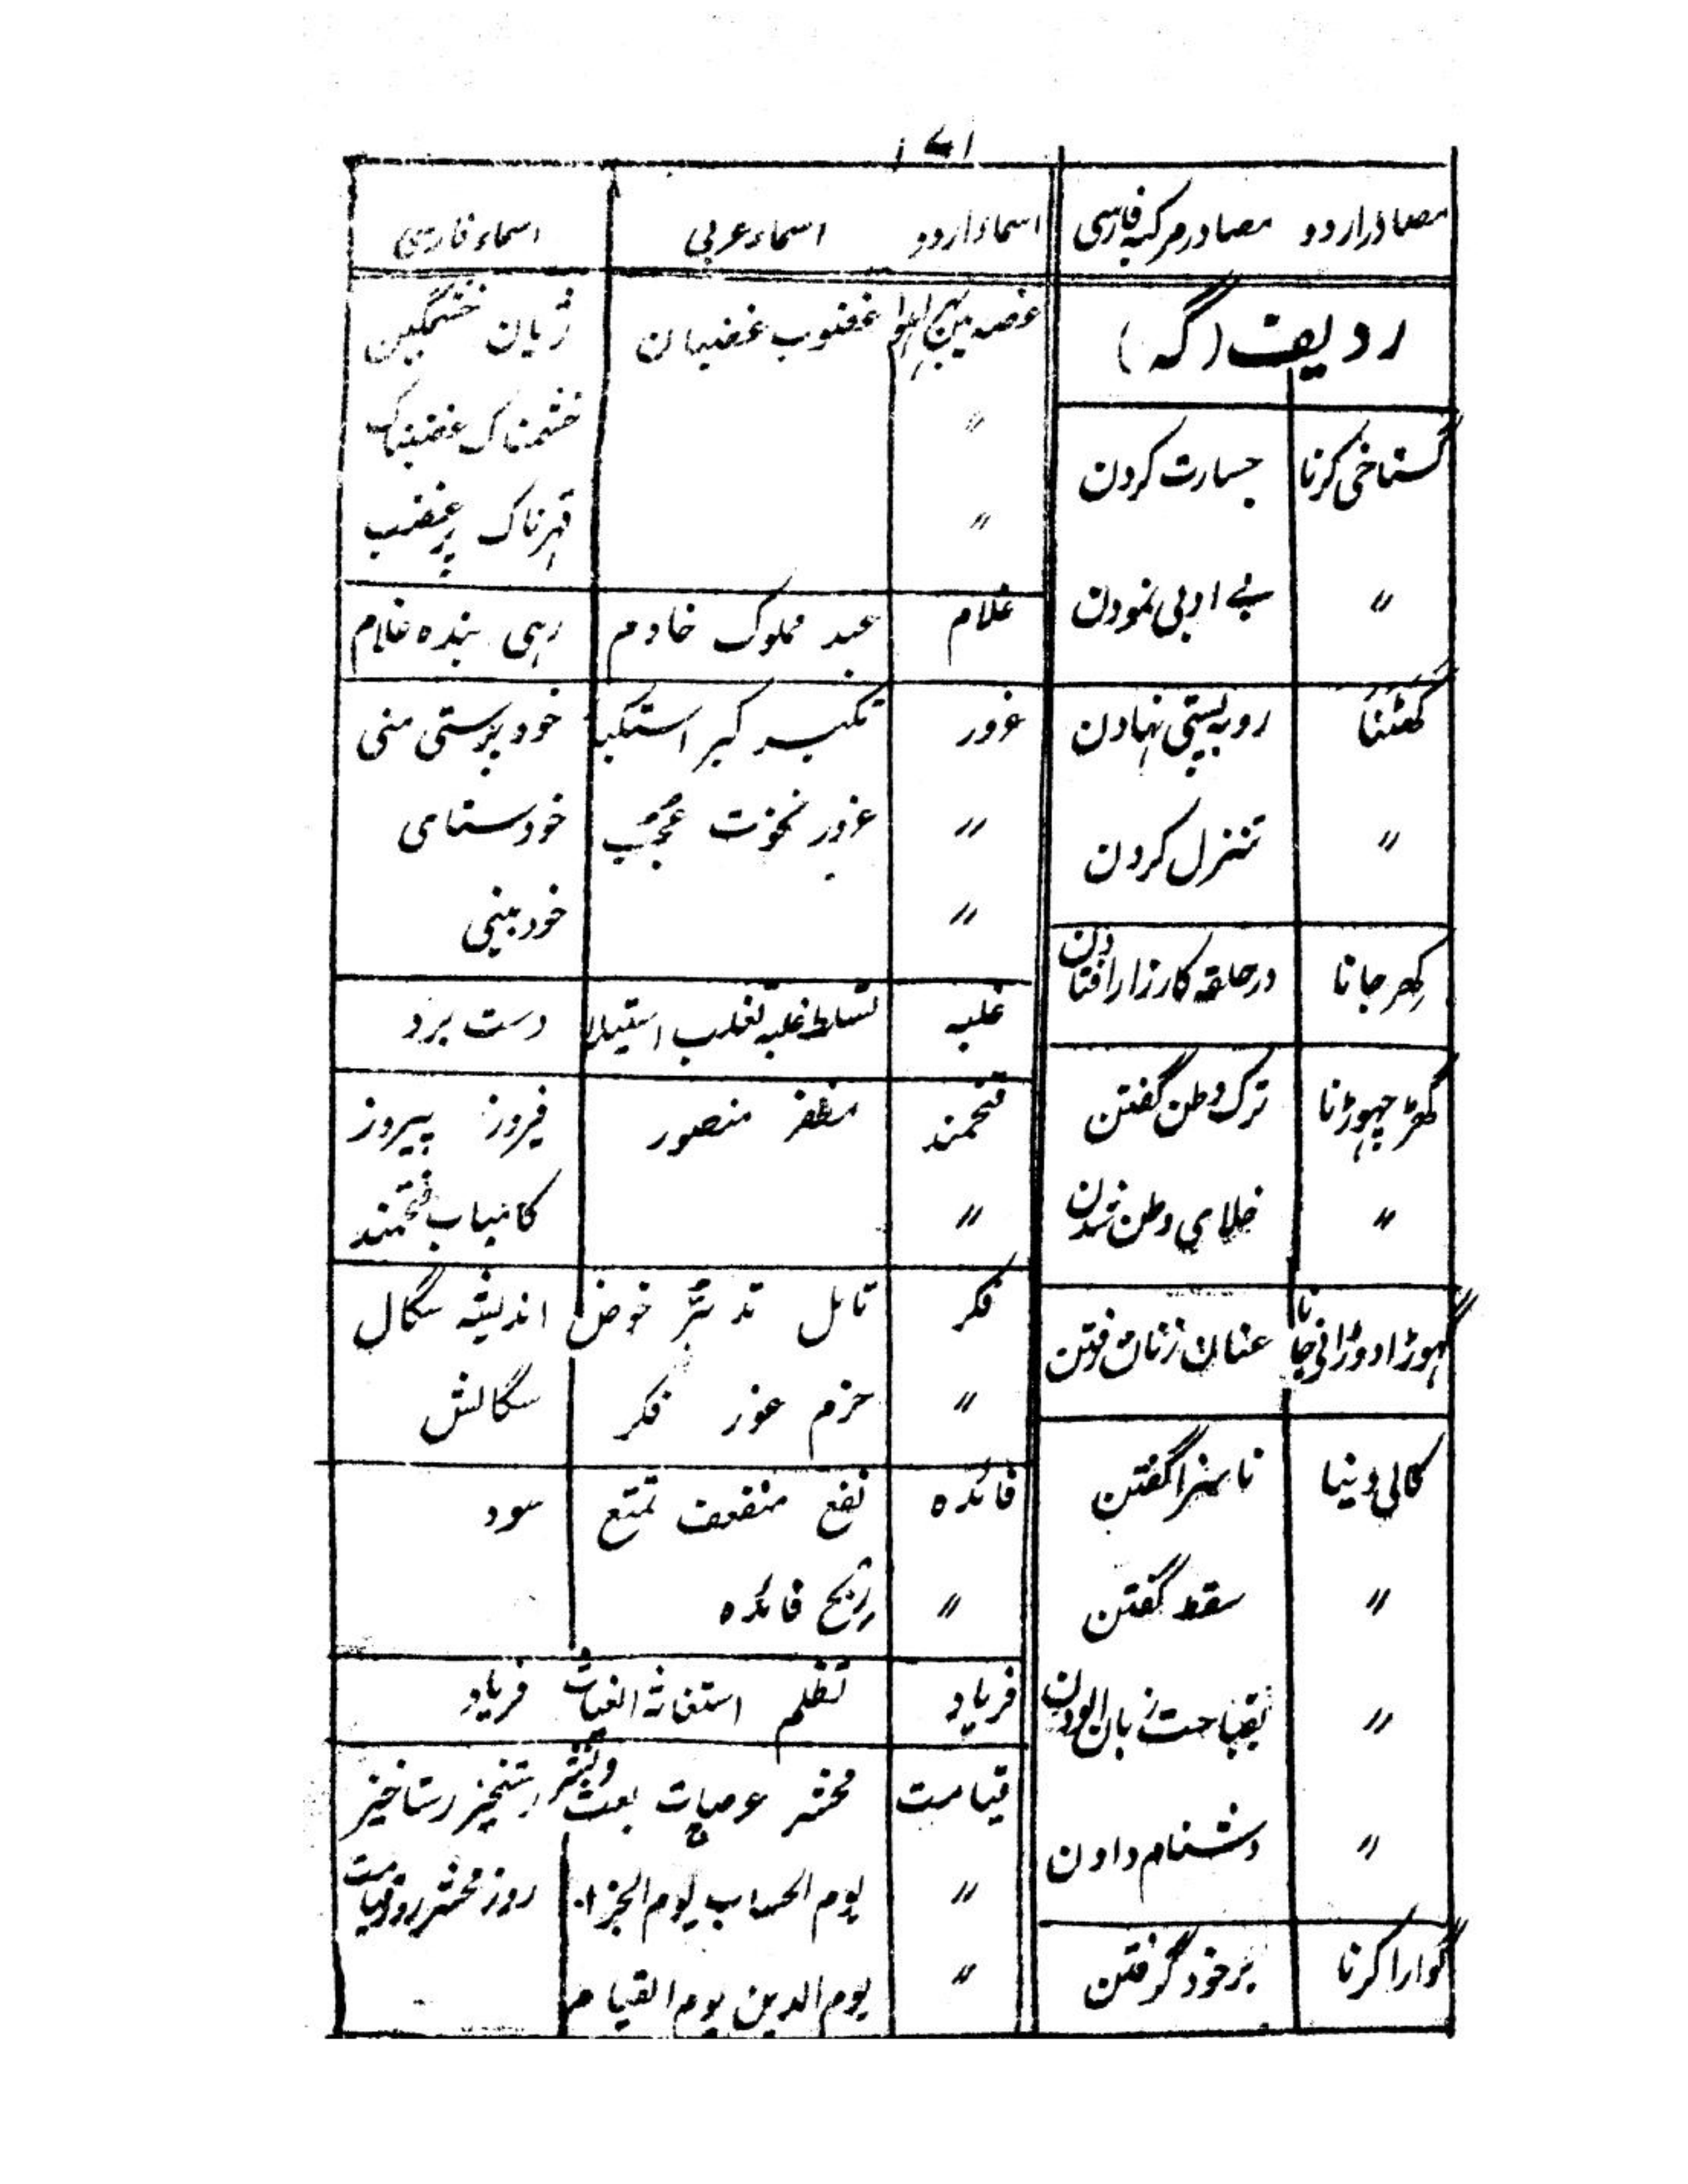 ۱۷۱
مصادر اردو مصادر مرکبه فارسی
ردیف (گ)
گستاخی کرنا جسارت کردن
〃 بے ادبی نمودن
گھٹنا رو به پستی نهادن
〃 تنزل کردن
گھر جانا در حلقه کارزار افتادن
گھر چھوڑنا ترک وطن گفتن
〃 وطن شدن
عنان زنان رفتن
گالی دینا ناسزا گفتن
〃 سقط گفتن
〃 بقباحت زبان الودن
〃 دشنام دادن
گوارا کرنا بر خود گرفتن
اسماء اردو اسماء عربی اسماء فارسی
غصه میں بھرا ہوا غضوب غضبان ژیان خشمگین
〃 خشمناک غضبناک
〃 قهرناک پر غضب
غلام عبد مملوک خادم رہی بنده غلام
غرور تکبر کبر استکبا خود پرستی منی
〃 غرور نخوت عجب خودستای
〃 خود بینی
غلبه تسلط غلبه تغلب استیلا دست برد
فتحمند مظفر منصور فیروز پیروز
〃 کامیاب فتحمند
فکر تامل تدبر خوض اندیشه سگال
〃 حزم غور فکر سگالش
فائده نفع منفعت تمتع سود
〃 ربح فائده
فریاد تظلم استغاثه الغیاث فریاد
قیامت محشر عرصات بعث ونشر رستخیز رستاخیز
〃 یوم الحساب یوم الجزاء روز محشر روز قیامت
〃 یوم الدین یوم القیام